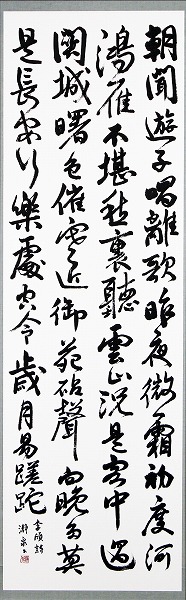 朝聞遊子唱離歌昨夜微霜初度河
鴻雁不堪愁裏聽雲山況是客中過
關城曙色催寒近御苑砧聲向晚多莫
是長安行樂處空令歲月易蹉跎
李頎詩